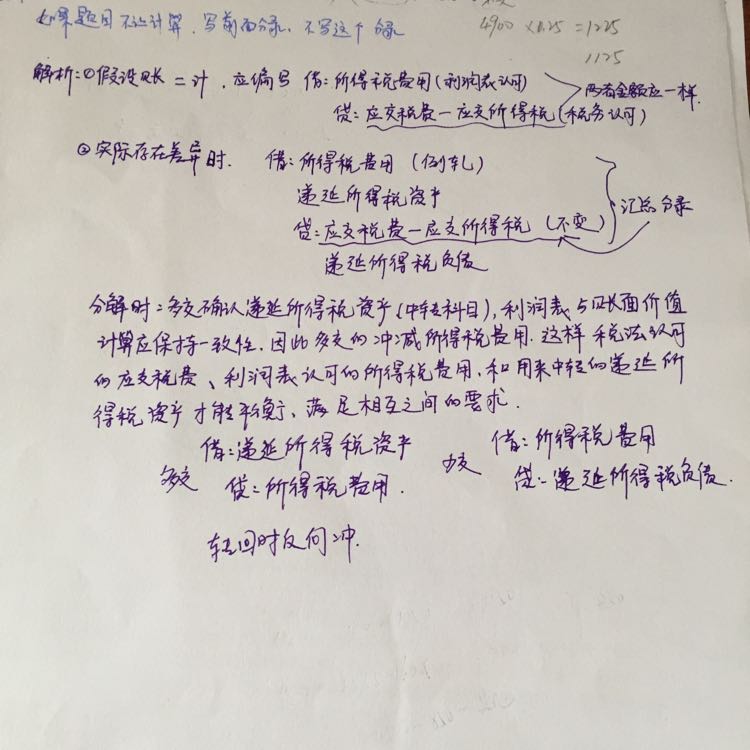 如果题目不让计算，写前面分录，不写这个分录
4900 × 0.25 = 1225
1125
解析：①假设账=计，应编写 借：所得税费用(利润表认可)
贷：应交税费—应交所得税(税务认可)
两者金额应一样.
②实际存在差异时. 借：所得税费用 (倒轧)
递延所得税资产
贷：应交税费—应交所得税 (不变)
递延所得税负债
汇总分录
分解时：多交确认递延所得税资产(中转科目)，利润表与账面价值
计算应保持一致性，因此多交的冲减所得税费用. 这样税法认可
的应交税费、利润表认可的所得税费用，和用来中转的递延所
得税资产才能平衡，满足相互之间的要求.
多交 借：递延所得税资产
贷：所得税费用.
少交 借：所得税费用
贷：递延所得税负债.
转回时反向冲.